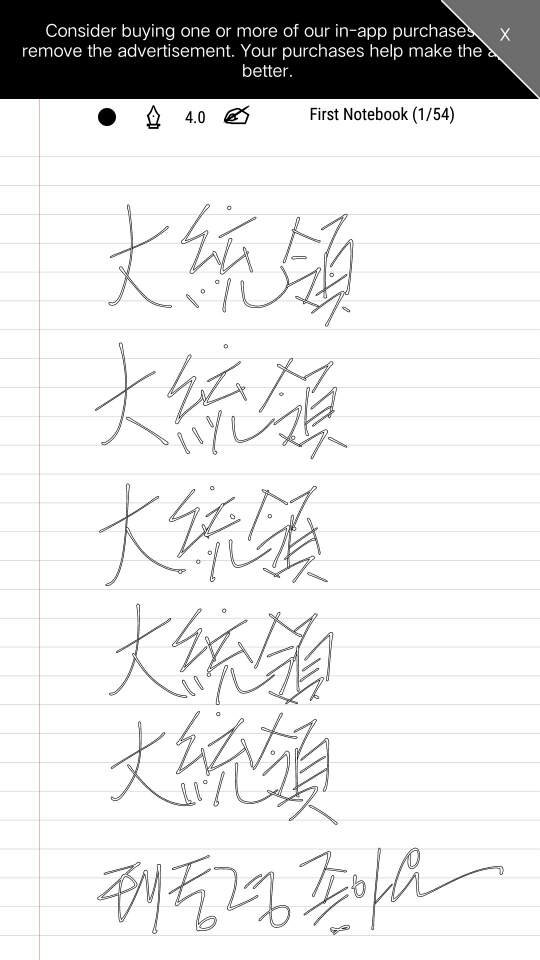 Consider buying one or more of our in-app purchases
remove the advertisement. Your purchases help make the
better.
X
4.0 First Notebook (1/54)
大統領
大統領
大統領
大統領
大統領
대통령 좋아요